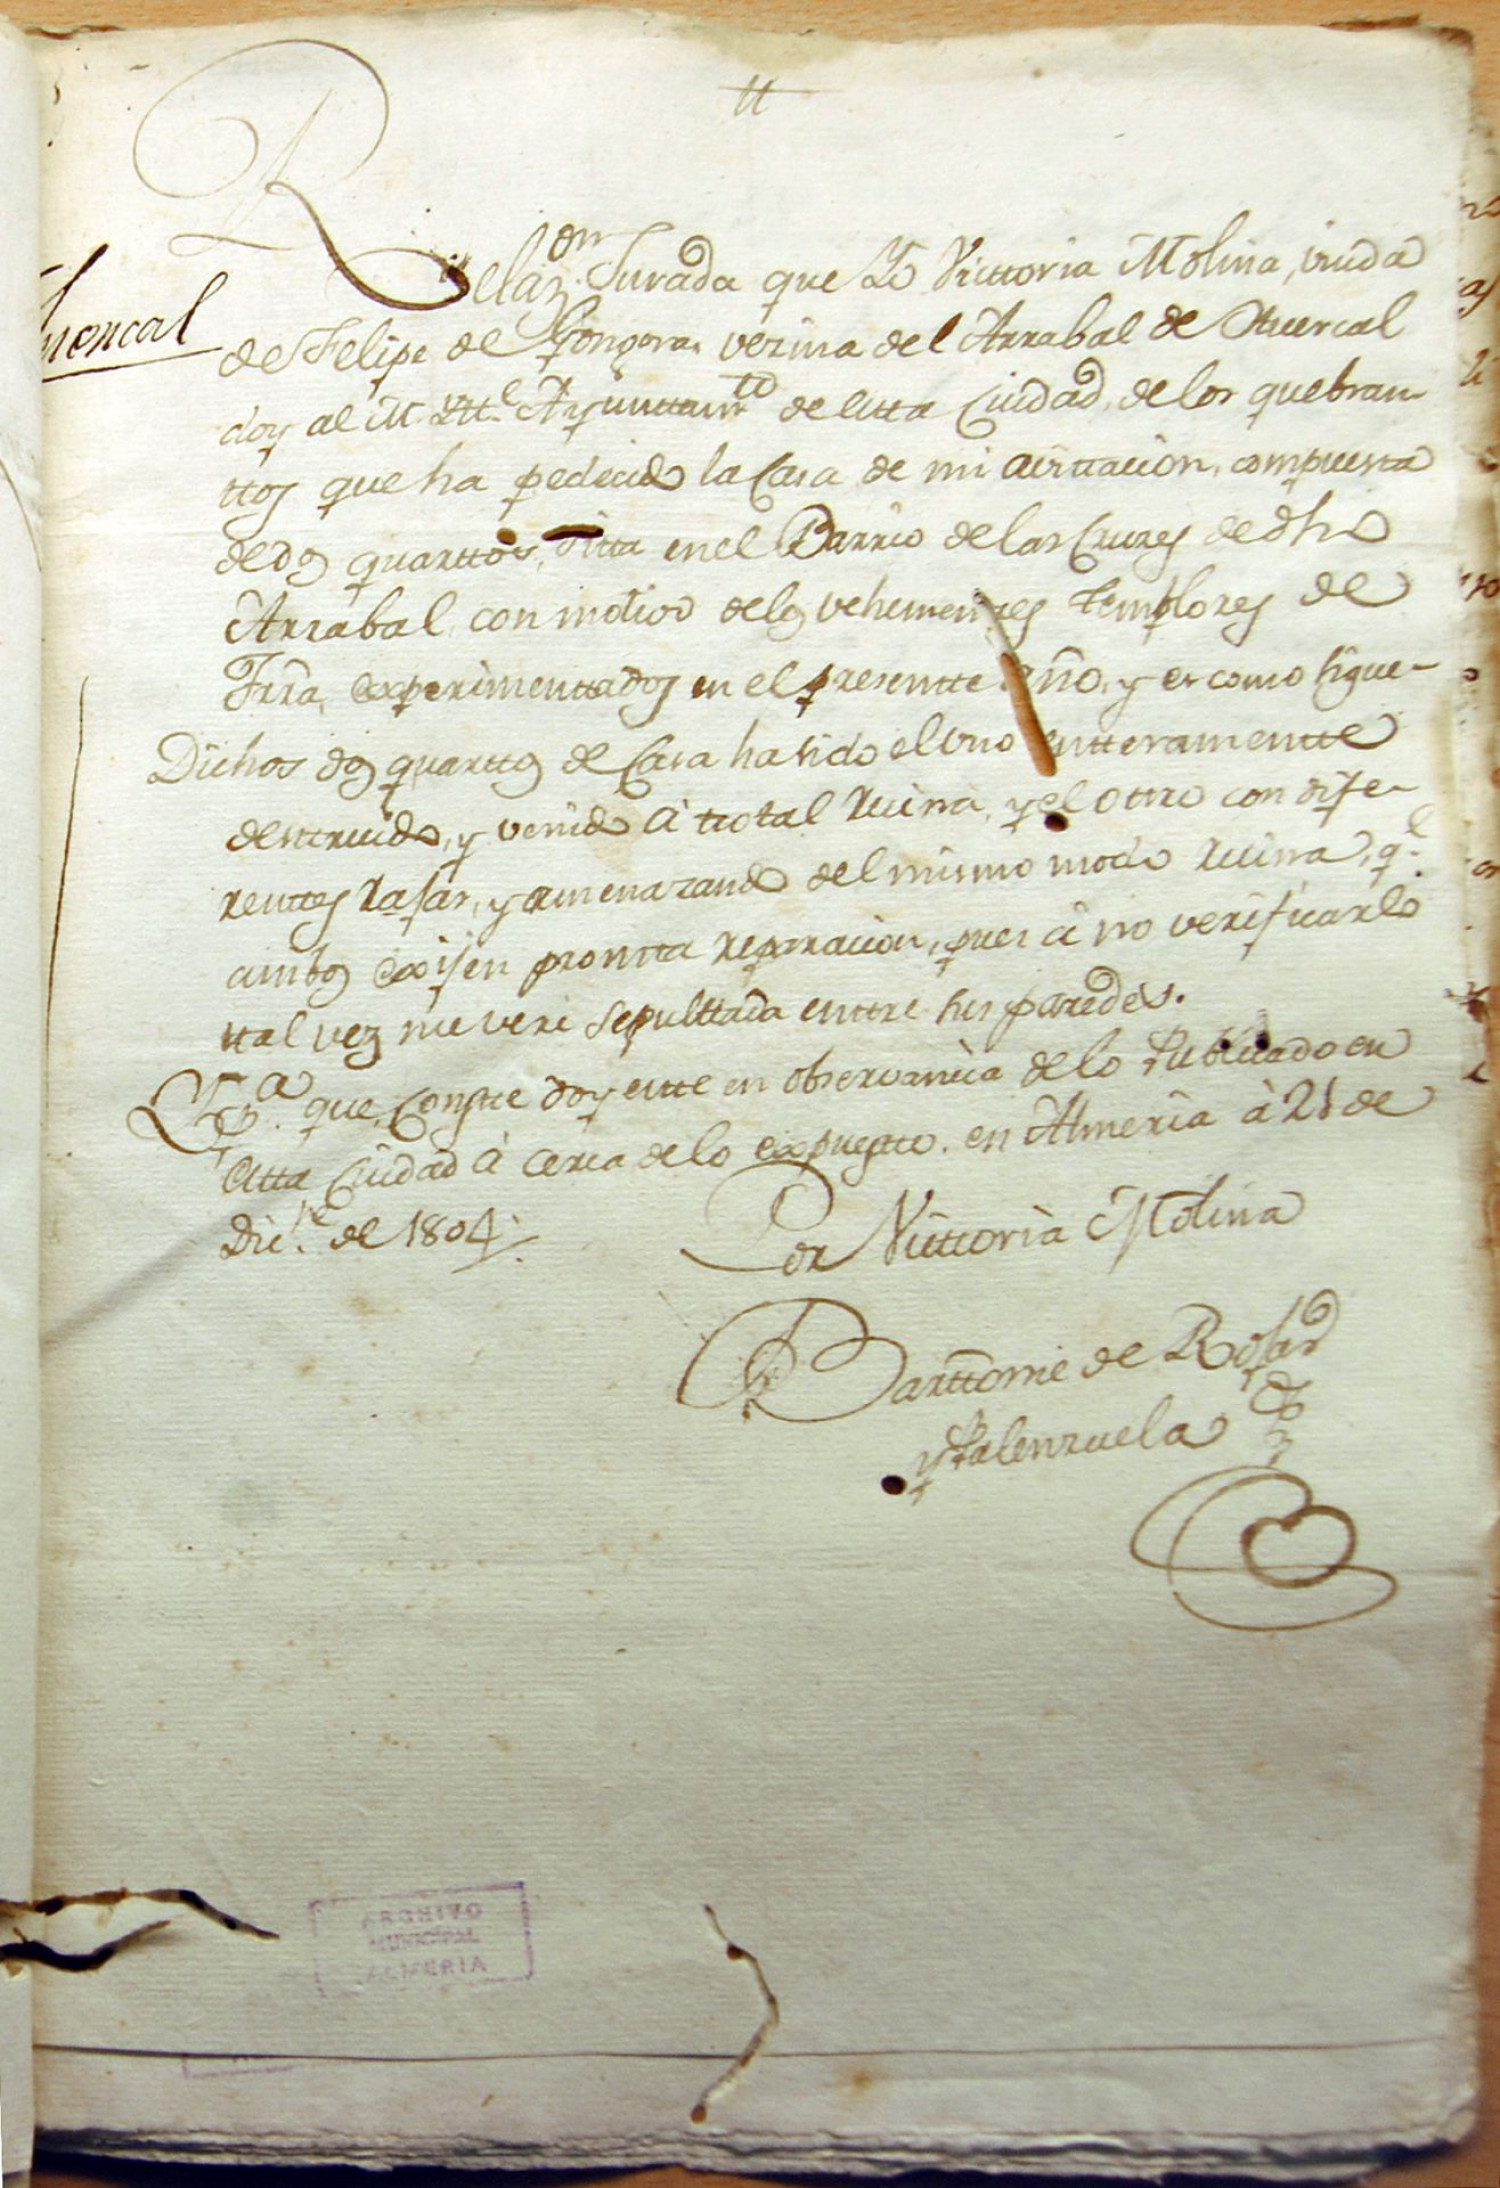 tt
Rellaz.on Jurada que Yo Victtoria Molina, viuda
Huercal
de Felipe de Gongora, vezina del Arrabal de Huercal
doy al M. Ytt.e Ayunttam.to de estta Ciudad, de los quebran-
ttos que ha pedecido la Casa de mi avittacion, compuesta
de dos quarttos, sitta en el Barrio de las Cruzes de dho
Arrabal, con motivo de los vehementes temblores de
Trrã, experimenttados en el presentte año, y es como sigue-
Dichos dos quarttos de Casa ha sido el uno entteramentte
desttruido, y venido à ttotal Ruina, y el ottro con dife-
renttes Rajas, y amenazando del mismo modo Ruina, q.e
ambos exijen prontta reparacion, pues à no verificarlo
ttal vez me veré sepulttada enttre sus paredes.
Y p.a que Conste doy estte en observancia de lo Publicado en
estta Ciudad à cerca de lo expuestto. en Almeria à 21 de
Dic.re de 1804.
Por Victtoria Molina
Barttome de Rojas
y Valenzuela
ARCHIVO
MUNICIPAL
ALMERIA